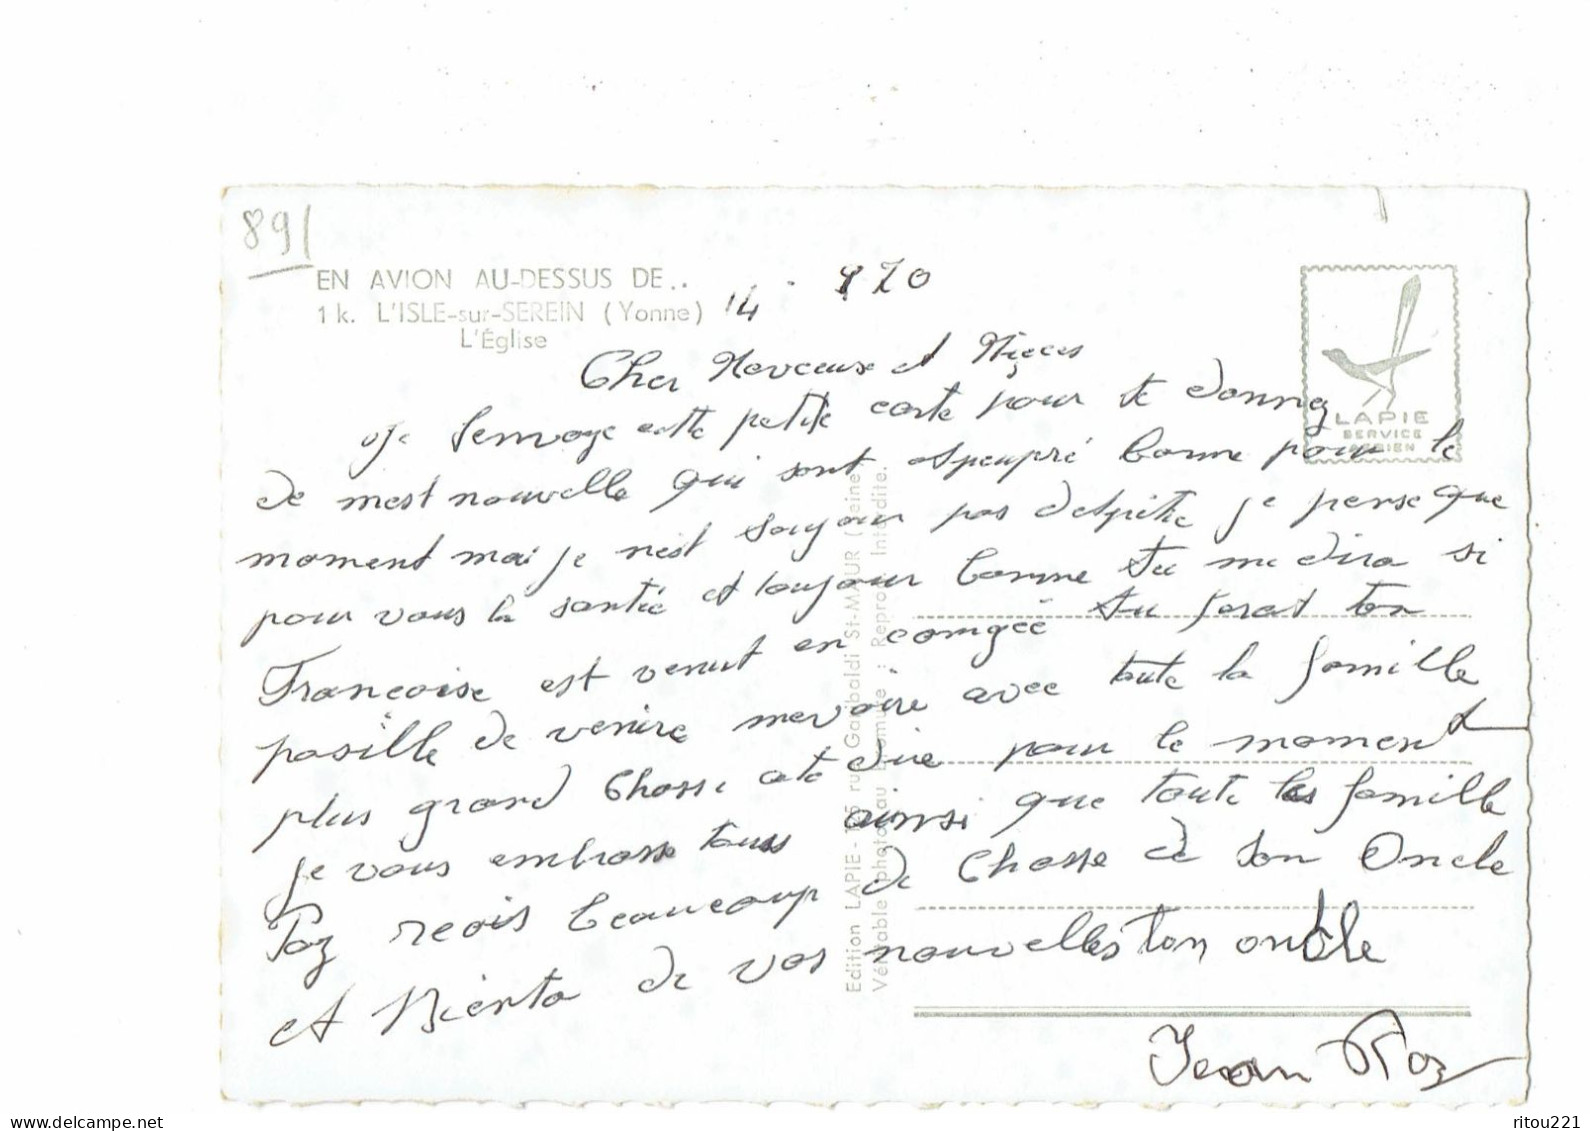 89
EN AVION AU-DESSUS DE..
1 k. L'ISLE-sur-SEREIN (Yonne)
L'Église
14 - 970
LAPIE
SERVICE
AERIEN
Cher Neveeux et Nieces
Je t'envoye cette petite carte pour te donnez
de mest nouvelle qui sont apeupré bonne pour le
moment mai je nest toujour pas je pense que
pour vous la santée et toujour bonne tu me dira si
Françoise est venut en comgée tu serat ton
posille de venire mevoire avec toute la famille
plus grand Chosse ate dire pour le moment
je vous embrasse tous ainsi que toute las famille
Roz recois beaucoup de Chosse de ton Oncle
et Biento de vos nouvelles ton oncle
Jean Roz
Edition LAPIE - 125 rue Garibaldi St-MAUR (Seine)
Véritable photo au bromure : Reprod. Interdite.
ritou221